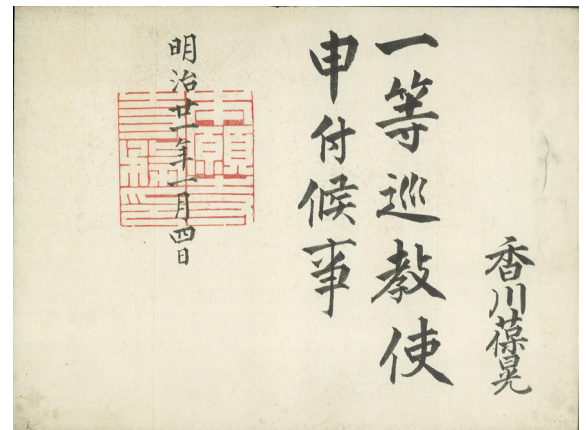 香川葆晃
一等巡教使
申付候事
明治廿一年一月四日
本願寺